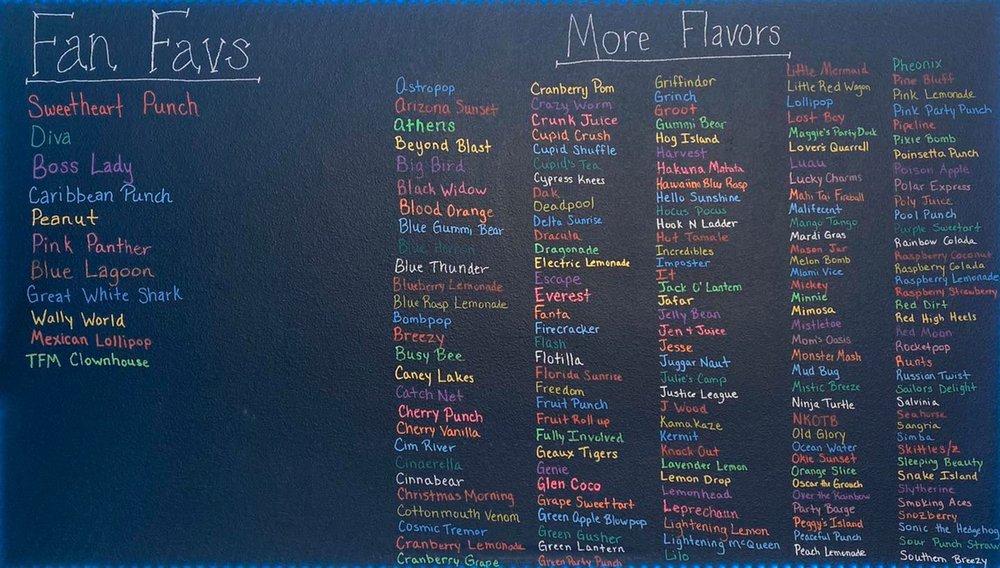 Fan Favs
Sweetheart Punch
Diva
Boss Lady
Caribbean Punch
Peanut
Pink Panther
Blue Lagoon
Great White Shark
Wally World
Mexican Lollipop
TFM Clownhouse
More Flavors
Astropop
Arizona Sunset
Athens
Beyond Blast
Big Bird
Black Widow
Blood Orange
Blue Gummi Bear
Blue
Blue Thunder
Blueberry Lemonade
Blue Rasp Lemonade
Bombpop
Breezy
Busy Bee
Caney Lakes
Catch Net
Cherry Punch
Cherry Vanilla
Cim River
Cinderella
Cinnabear
Christmas Morning
Cottonmouth Venom
Cosmic Tremor
Cranberry Lemonade
Cranberry Grape
Cranberry Pom
Crazy Worm
Crunk Juice
Cupid Crush
Cupid Shuffle
Cupid's Tea
Cypress Knees
Dak
Deadpool
Delta Sunrise
Dracula
Dragonade
Electric Lemonade
Escape
Everest
Fanta
Firecracker
Flash
Flotilla
Florida Sunrise
Freedom
Fruit Punch
Fruit Roll up
Fully Involved
Geaux Tigers
Genie
Glen Coco
Grape Sweettart
Green Apple Blowpop
Green Gusher
Green Lantern
Green Party Punch
Griffindor
Grinch
Groot
Gummi Bear
Hog Island
Harvest
Hakuna Matata
Hawaiian Blue Rasp
Hello Sunshine
Hocus Pocus
Hook N Ladder
Hot Tamale
Incredibles
Imposter
It
Jack O' Lantern
Jafar
Jelly Bean
Jen & Juice
Jesse
Juggar Naut
Julie's Camp
Justice League
J Wood
Kama Kaze
Kermit
Knock Out
Lavender Lemon
Lemon Drop
Lemonhead
Leprechaun
Lightening Lemon
Lightening McQueen
Lilo
Little Mermaid
Little Red Wagon
Lollipop
Lost Boy
Maggie's Party Dock
Lover's Quarrell
Luau
Lucky Charms
Mahi Tai Fireball
Malificent
Mango Tango
Mardi Gras
Mason Jar
Melon Bomb
Miami Vice
Mickey
Minnie
Mimosa
Mistletoe
Momi's Oasis
Monster Mash
Mud Bug
Mistic Breeze
Ninja Turtle
NKOTB
Old Glory
Ocean Water
Okie Sunset
Orange Slice
Oscar the Grouch
Over the Rainbow
Party Barge
Peggy's Island
Peaceful Punch
Peach Lemonade
Pheonix
Pine Bluff
Pink Lemonade
Pink Party Punch
Pipeline
Pixie Bomb
Poinsetta Punch
Poison Apple
Polar Express
Poly Juice
Pool Punch
Purple Sweetart
Rainbow Colada
Raspberry Coconut
Raspberry Colada
Raspberry Lemonade
Raspberry Strawberry
Red Dirt
Red High Heels
Red Moon
Rocketpop
Runts
Russian Twist
Sailors Delight
Salvinia
Seahorse
Sangria
Simba
Skittles/z
Sleeping Beauty
Snake Island
Slytherine
Smoking Aces
Snozberry
Sonic the Hedgehog
Sour Punch Straw
Southern Breezy